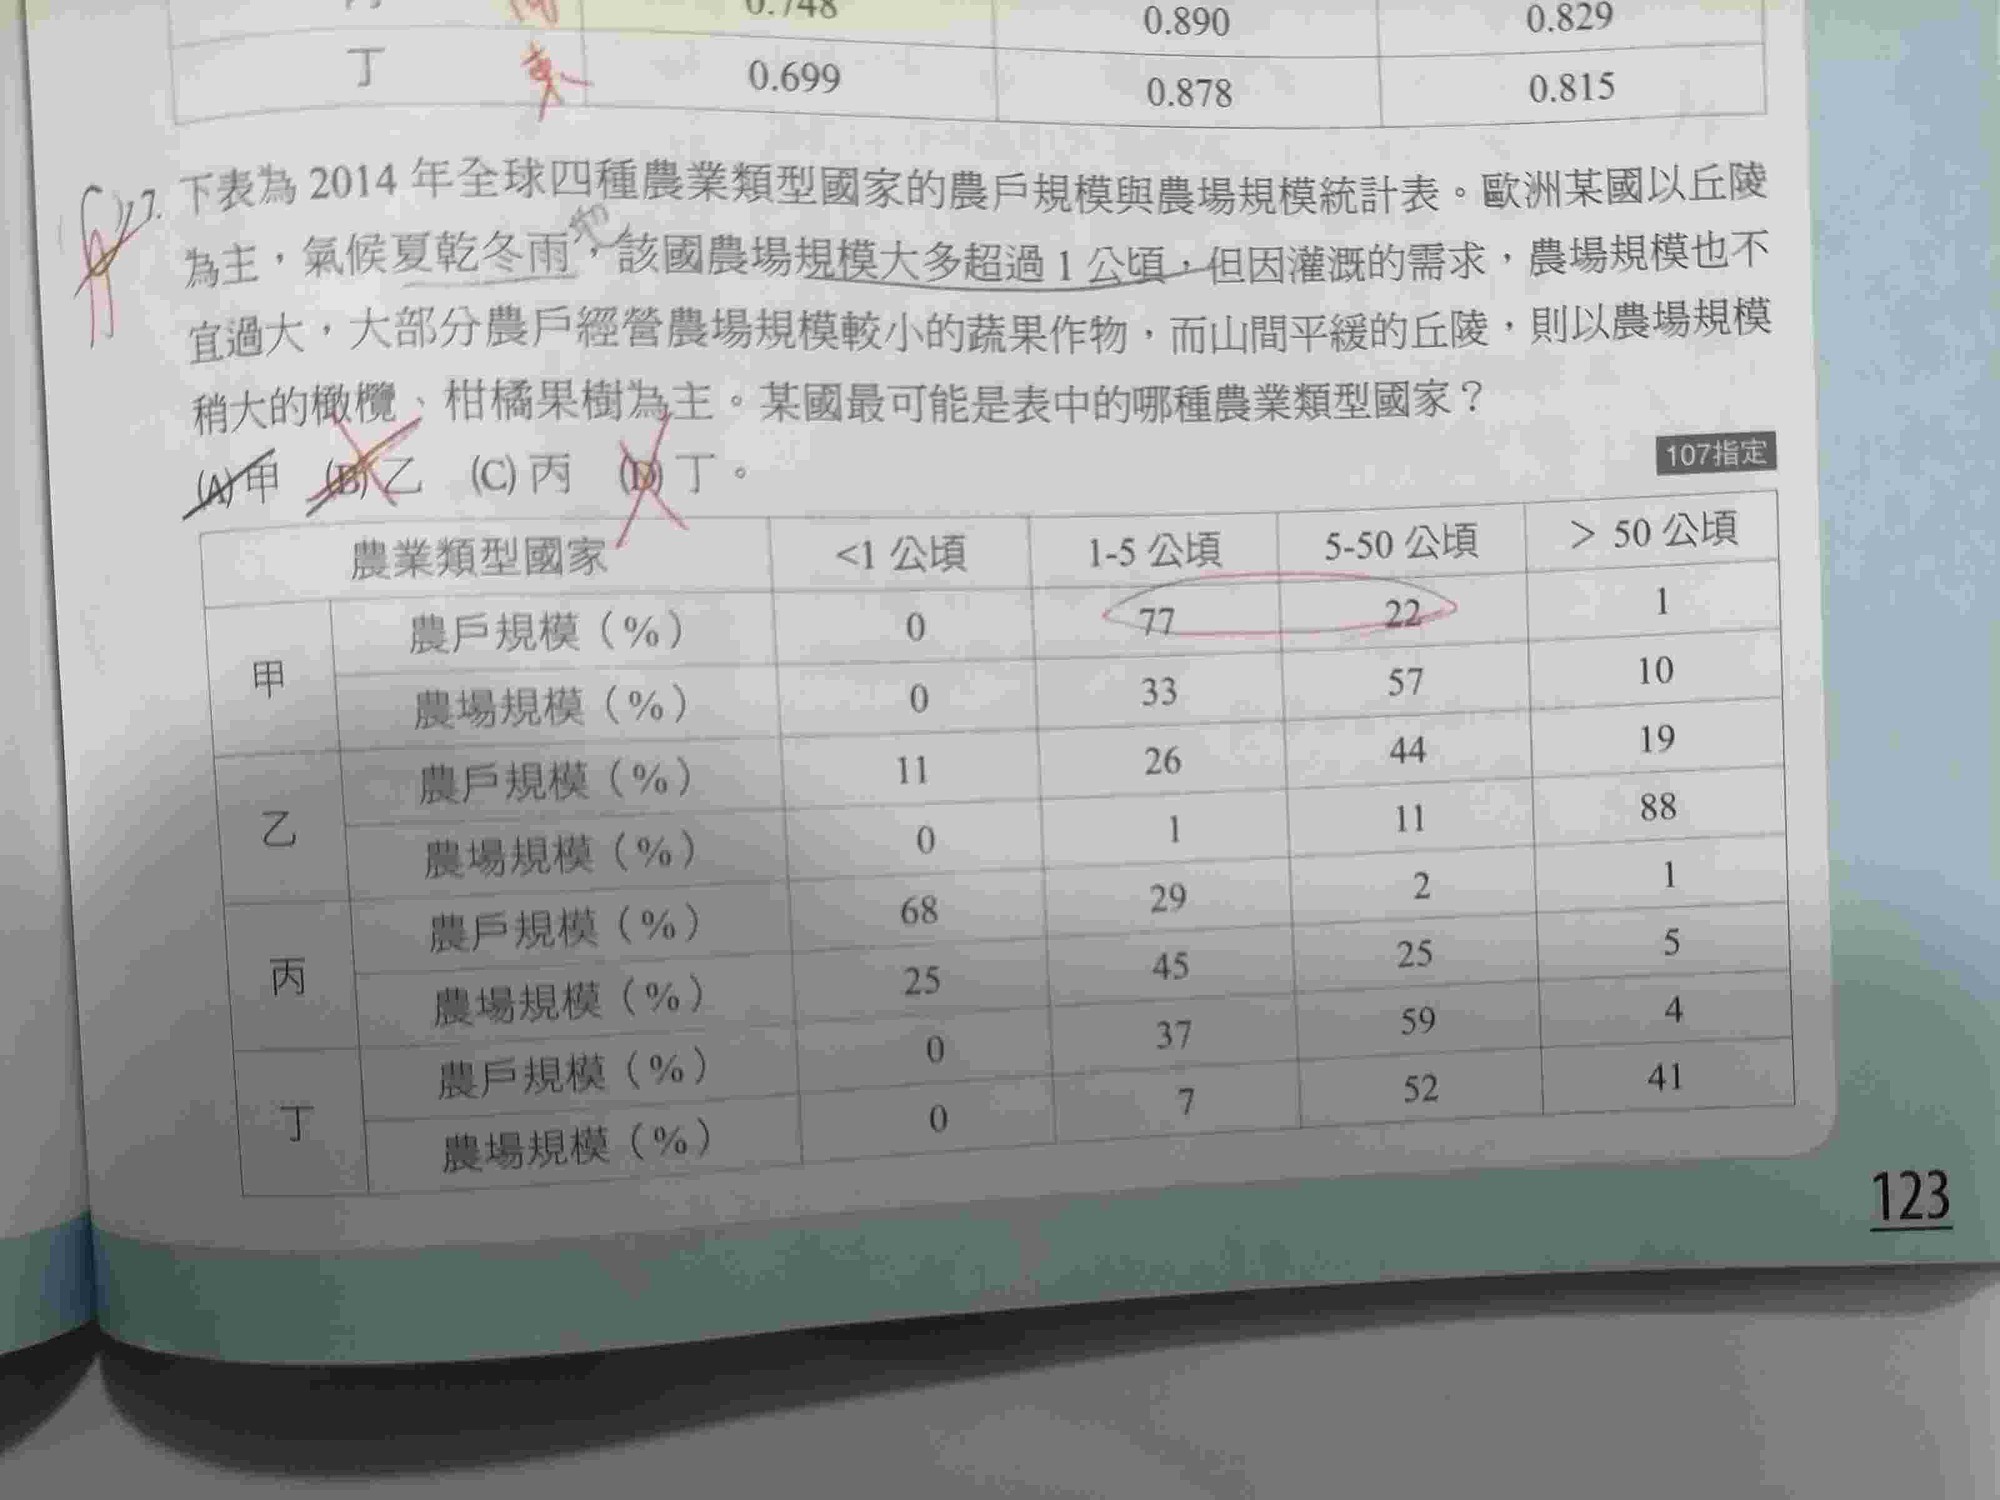 0.748 0.890 0.829
丁 0.699 0.878 0.815
17. 下表為 2014 年全球四種農業類型國家的農戶規模與農場規模統計表。歐洲某國以丘陵
為主，氣候夏乾冬雨，該國農場規模大多超過 1 公頃，但因灌溉的需求，農場規模也不
宜過大，大部分農戶經營農場規模較小的蔬果作物，而山間平緩的丘陵，則以農場規模
稍大的橄欖、柑橘果樹為主。某國最可能是表中的哪種農業類型國家？
(A) 甲 (B) 乙 (C) 丙 (D) 丁。
107指定
農業類型國家 <1 公頃 1-5 公頃 5-50 公頃 > 50 公頃
甲 農戶規模（%） 0 77 22 1
農場規模（%） 0 33 57 10
乙 農戶規模（%） 11 26 44 19
農場規模（%） 0 1 11 88
丙 農戶規模（%） 68 29 2 1
農場規模（%） 25 45 25 5
丁 農戶規模（%） 0 37 59 4
農場規模（%） 0 7 52 41
123